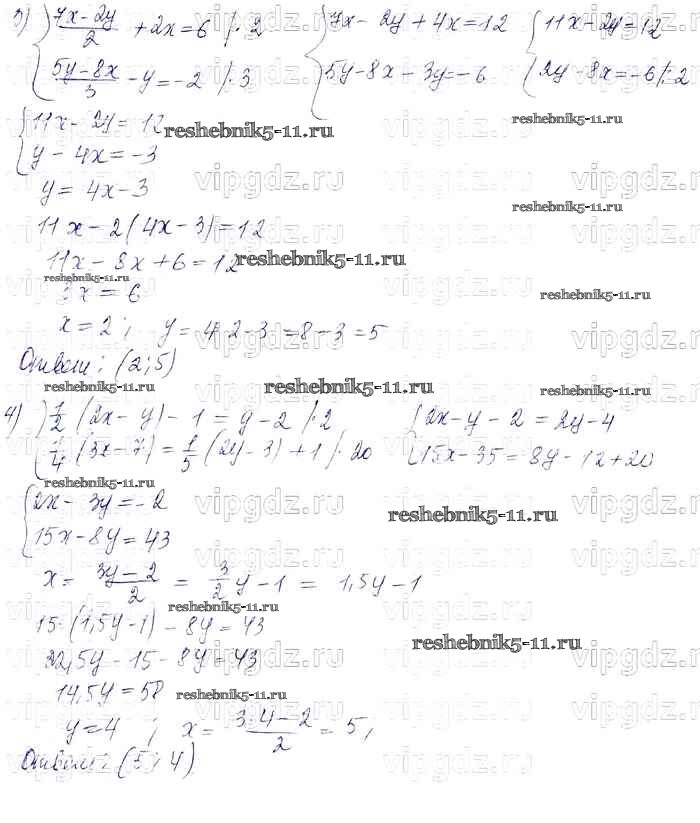 3) { (7x-2y)/2 + 2x = 6 |· 2 { 7x - 2y + 4x = 12 { 11x - 2y = 12
{ (5y-8x)/3 - y = -2 |· 3 { 5y - 8x - 3y = -6 { 2y - 8x = -6 |: 2
{ 11x - 2y = 12
{ y - 4x = -3
y = 4x - 3
11x - 2(4x - 3) = 12
11x - 8x + 6 = 12
3x = 6
x = 2 ; y = 4·2 - 3 = 8 - 3 = 5
Ответ: (2; 5)
4) { 1/2 (2x - y) - 1 = y - 2 |· 2 { 2x - y - 2 = 2y - 4
{ 1/4 (3x - 7) = 1/5 (2y - 3) + 1 |· 20 { 15x - 35 = 8y - 12 + 20
{ 2x - 3y = -2
{ 15x - 8y = 43
x = (3y - 2)/2 = 3/2 y - 1 = 1,5y - 1
15·(1,5y - 1) - 8y = 43
22,5y - 15 - 8y = 43
14,5y = 58
y = 4 ; x = (3·4 - 2)/2 = 5,
Ответ: (5; 4)
reshebnik5-11.ru
vipgdz.ru